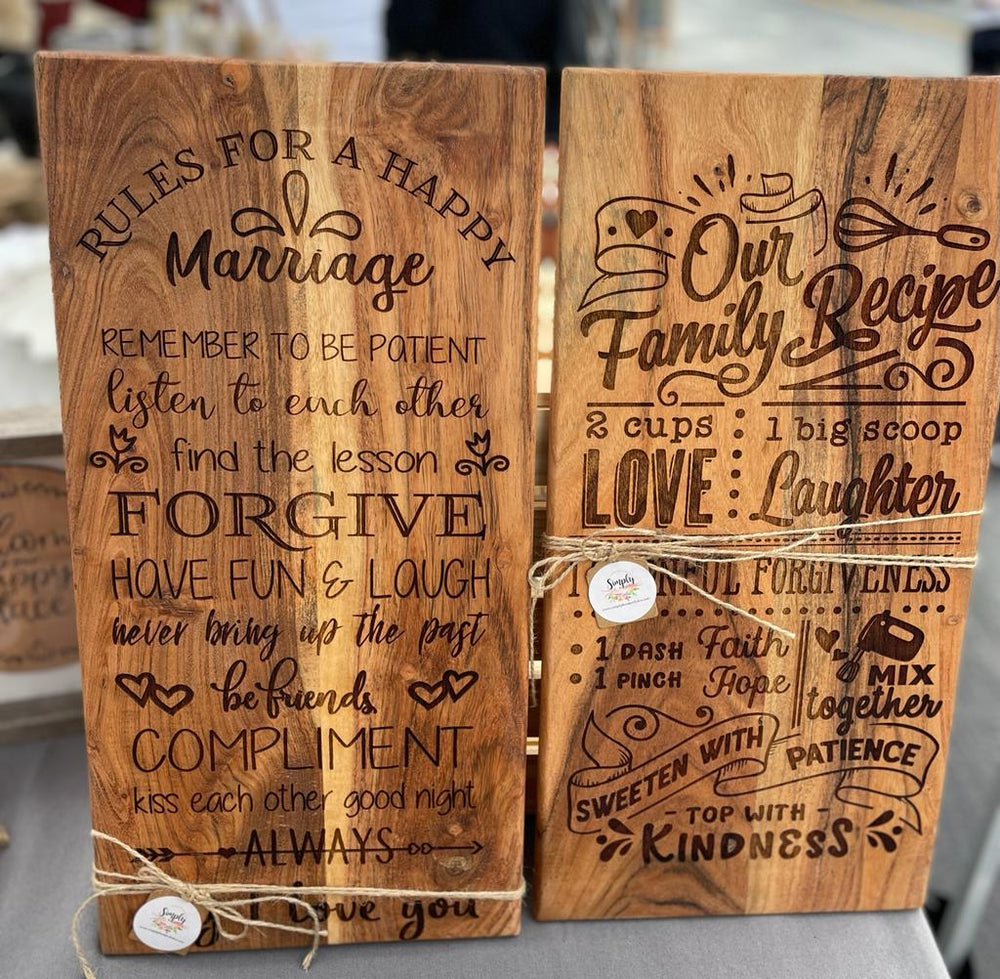 RULES FOR A HAPPY
Marriage
REMEMBER TO BE PATIENT
listen to each other
find the lesson
FORGIVE
HAVE FUN & LAUGH
never bring up the past
be friends
COMPLIMENT
kiss each other good night
ALWAYS
I love you
Simply
Our
Family Recipe
2 cups
LOVE
1 big scoop
Laughter
FORGIVENESS
Simply
1 DASH Faith
1 PINCH Hope
MIX
together
SWEETEN WITH PATIENCE
- TOP WITH -
KINDNESS